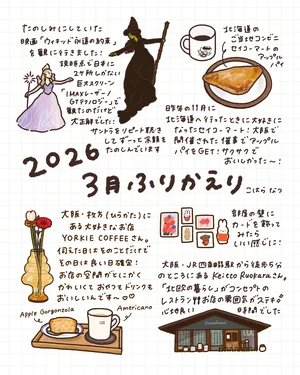 たのしみにしていた
映画「ウィキッド永遠の約束」
を観に行きました!
現時点で日本に
2ヶ所しかない
巨大スクリーン
「IMAXレーザー/
GTテクノロジー」で
観たのだけど
大正解でした!
サントラをリピート聴き
してずーっと余韻を
たのしんでいます
北海道の
ご当地コンビニ
セイコーマートの
アップル
パイ
昨年の11月に
北海道へ行ったときに大好きに
なったセイコーマート!大阪で
開催された催事でアップル
パイをGET!サクサクで
おいしかった〜!
2026
3月ふりかえり
こはら なつ
大阪・枚方(ひらかた)に
ある大好きなお店
YORKIE COFFEEさん。
伺った日はそのことだけで
その日は良い日確定!
お店の空間がとにかく
かわいくておやつもドリンクも
おいしいんです〜
Apple Gorgonzola
Americano
部屋の壁に
カードを飾って
みたら
いい感じに!
大阪・JR四条畷駅から徒歩5分
のところにある Keitto Ruokalaさん。
「北欧の暮らし」がコンセプトの
レストラン!!お店の雰囲気がステキで
心地良い 時間でした